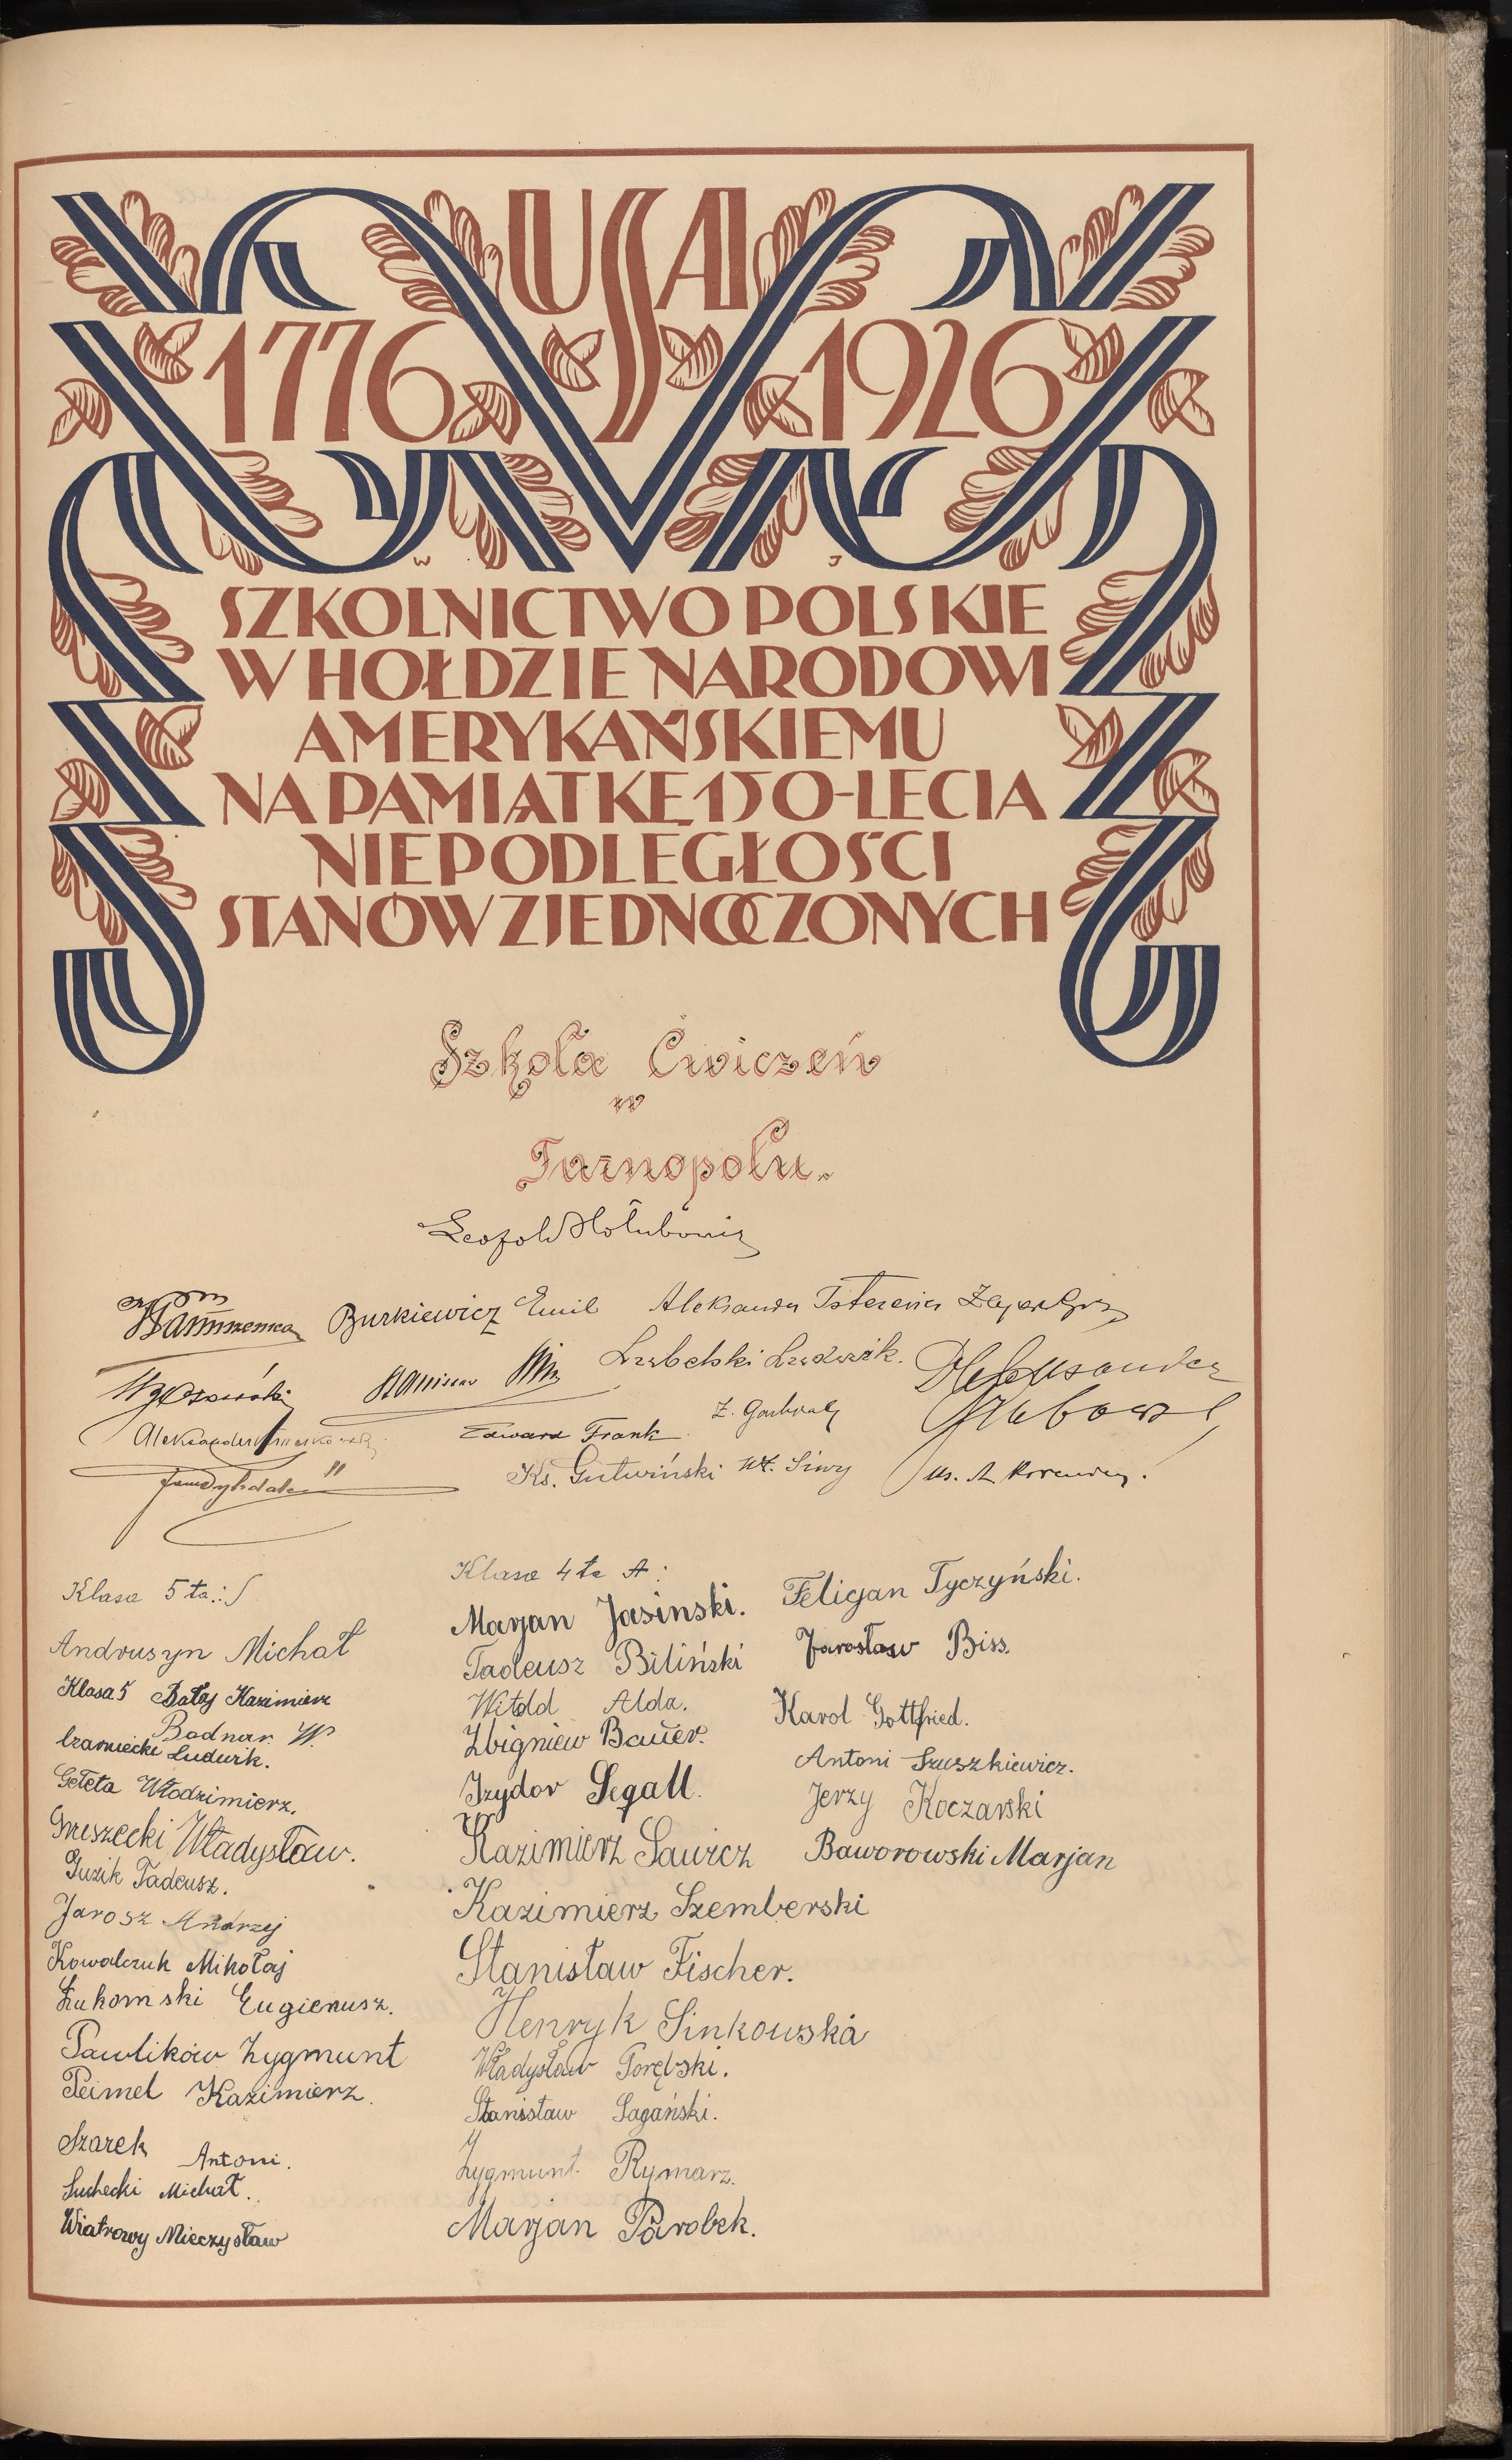 USA
1776 1926
W J
SZKOLNICTWO POLSKIE
W HOŁDZIE NARODOWI
AMERYKAŃSKIEMU
NA PAMIĄTKĘ 150-LECIA
NIEPODLEGŁOŚCI
STANÓW ZJEDNOCZONYCH
Szkoła Ćwiczeń
w
Tarnopolu.
Leopold Hołubowicz
Burkiewicz Emil Aleksander
Stanisław
Aleksander
Edward Frank
Ks. Gutwiński Wł. Siwy
Ks. A.
Klasa 5 ta:
Andrusyn Michał
Klasa 5 Bałaj Kazimierz
Bodnar W.
Czarniecki Ludwik.
Gełeta Włodzimierz.
Greszecki Władysław.
Guzik Tadeusz.
Jarosz Andrzej
Kowalczuk Mikołaj
Łukomski Eugieniusz.
Pawlików Zygmunt
Peimel Kazimierz.
Szarek Antoni.
Suchecki Michał.
Wiatrowy Mieczysław
Klasa 4 ta A:
Marjan Jasinski.
Tadeusz Biliński
Witold Alda.
Zbigniew Bauer.
Izydor Segall.
Kazimierz Sawicz
Kazimierz Szemberski
Stanisław Fischer.
Henryk Sinkowska
Władysław Porębski.
Stanisław Sagański.
Zygmunt Rymarz.
Marjan Parobek.
Feligan Tyczyński.
Jarosław Biss.
Karol Gottfried.
Antoni Szuszkiewicz.
Jerzy Koczarski
Baworowski Marjan